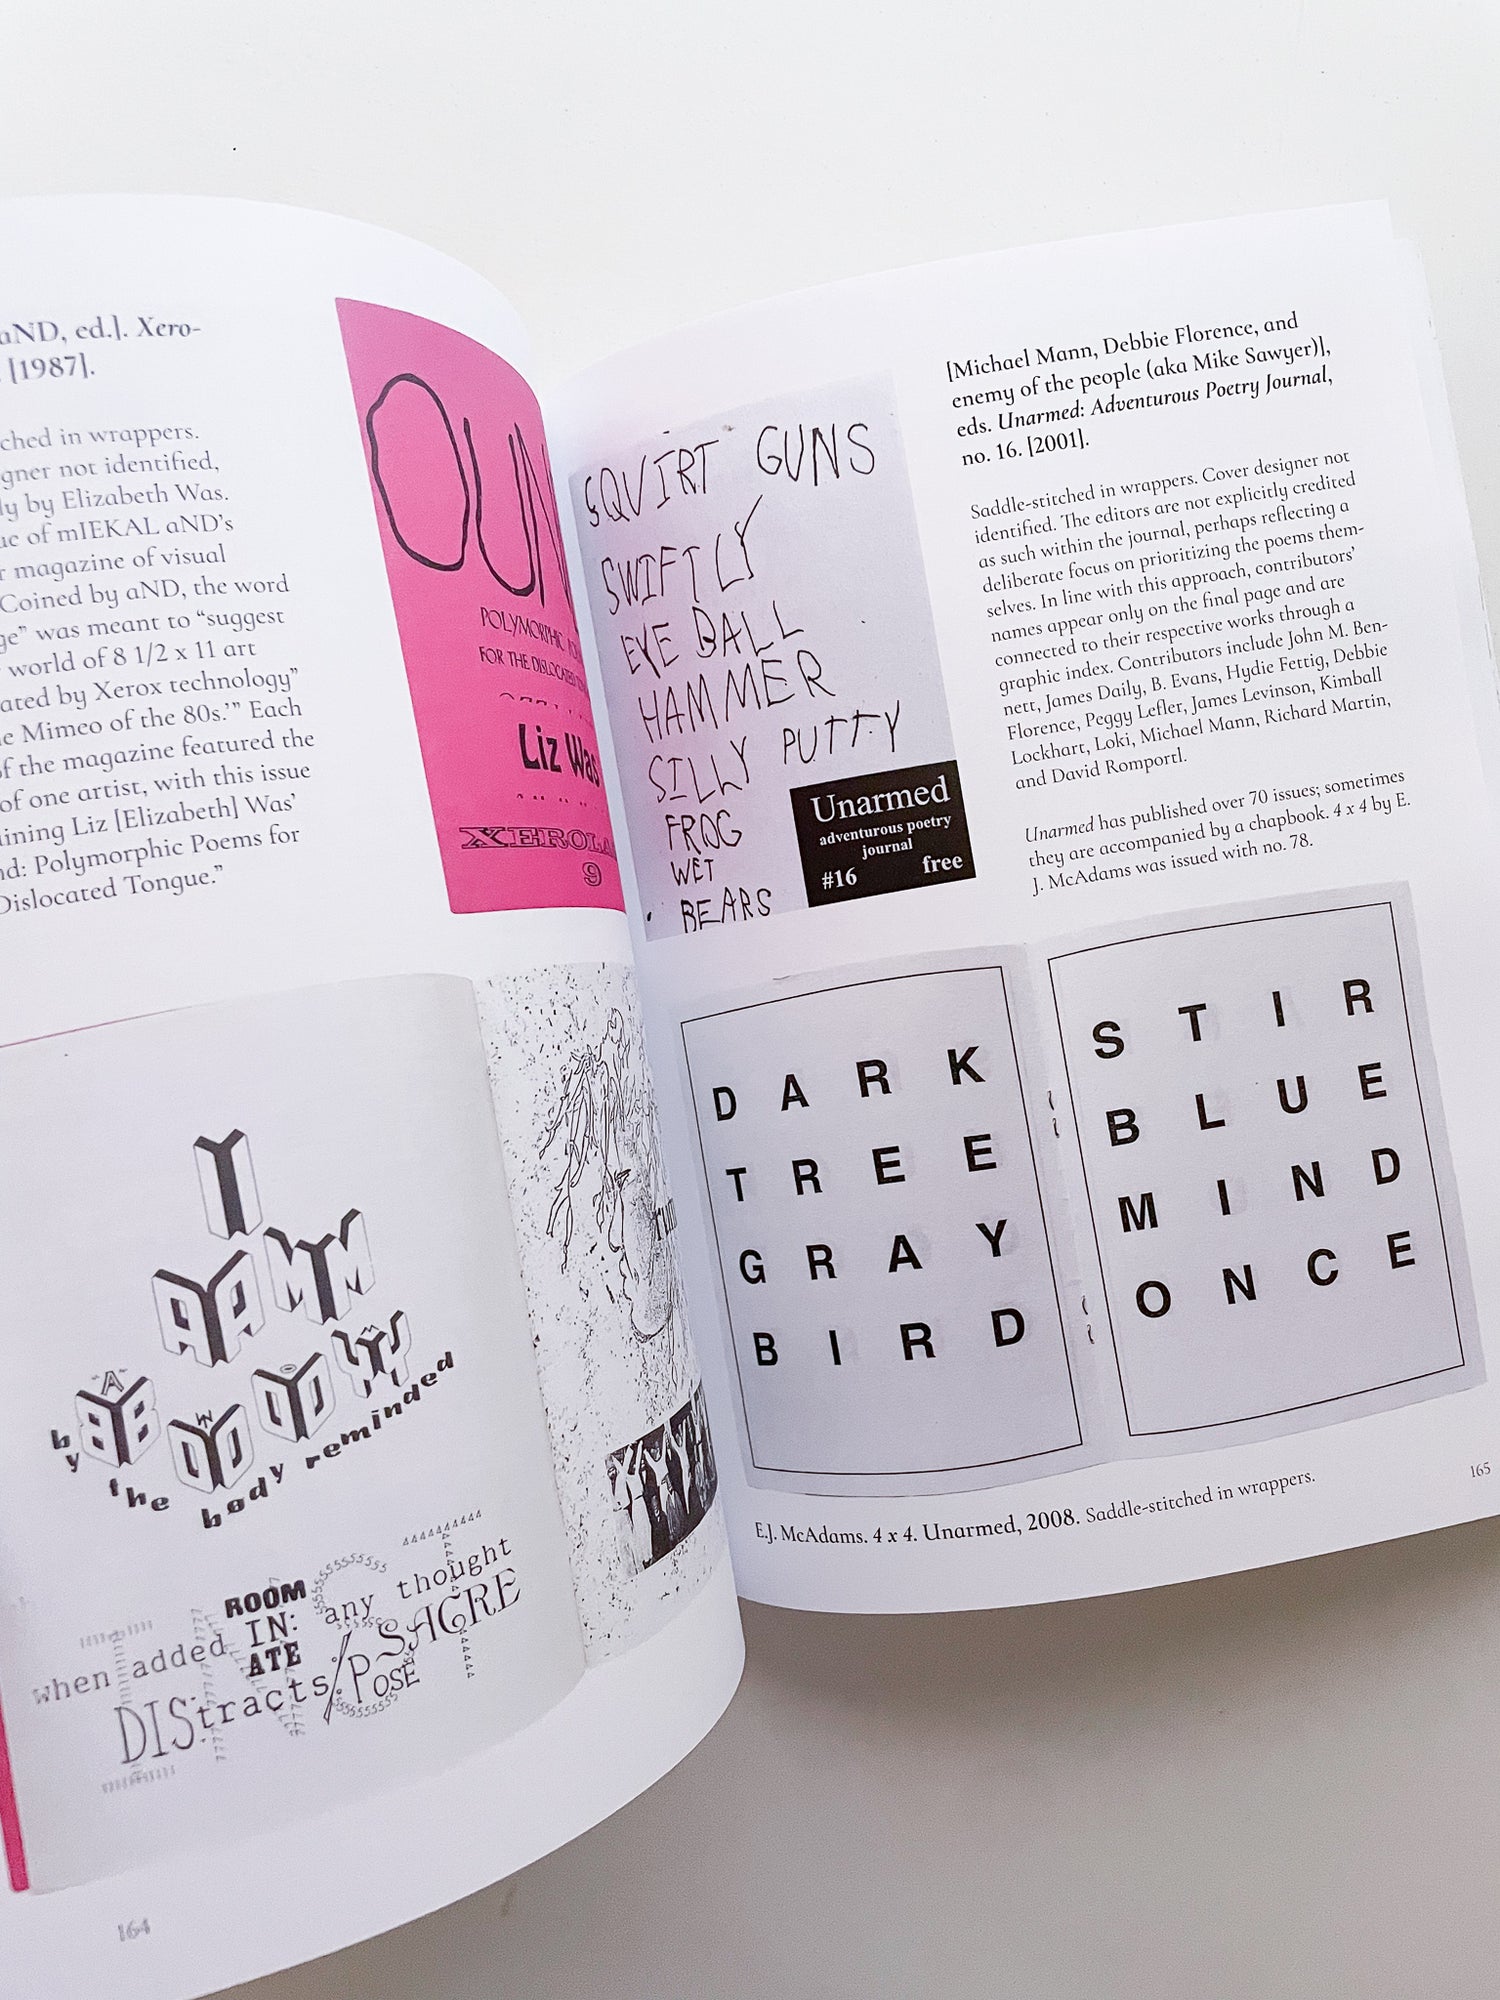 aND, ed.]. Xero-
[1987].
ched in wrappers.
gner not identified,
ly by Elizabeth Was.
ue of mIEKAL aND's
r magazine of visual
Coined by aND, the word
ge” was meant to “suggest
world of 8 1/2 x 11 art
ated by Xerox technology”
e Mimeo of the 80s.’” Each
f the magazine featured the
of one artist, with this issue
ining Liz [Elizabeth] Was’
nd: Polymorphic Poems for
Dislocated Tongue.”
OUN
POLYMORPHIC
FOR THE DISLOCATED
Liz Was
XEROL
9
Y
AA MM
BE DD DD
by the body reminded
when added
ROOM
IN:
ATE
any thought
DIStracts/POSE
SACRE
164
SQUIRT GUNS
SWIFTLY
EYE BALL
HAMMER
SILLY PUTTY
FROG
WET
BEARS
Unarmed
adventurous poetry
journal
#16 free
[Michael Mann, Debbie Florence, and
enemy of the people (aka Mike Sawyer)],
eds. Unarmed: Adventurous Poetry Journal,
no. 16. [2001].
Saddle-stitched in wrappers. Cover designer not
identified. The editors are not explicitly credited
as such within the journal, perhaps reflecting a
deliberate focus on prioritizing the poems them-
selves. In line with this approach, contributors’
names appear only on the final page and are
connected to their respective works through a
graphic index. Contributors include John M. Ben-
nett, James Daily, B. Evans, Hydie Fettig, Debbie
Florence, Peggy Lefler, James Levinson, Kimball
Lockhart, Loki, Michael Mann, Richard Martin,
and David Romportl.
Unarmed has published over 70 issues; sometimes
they are accompanied by a chapbook. 4 x 4 by E.
J. McAdams was issued with no. 78.
D A R K
T R E E
G R A Y
B I R D
S T I R
B L U E
M I N D
O N C E
E.J. McAdams. 4 x 4. Unarmed, 2008. Saddle-stitched in wrappers.
165